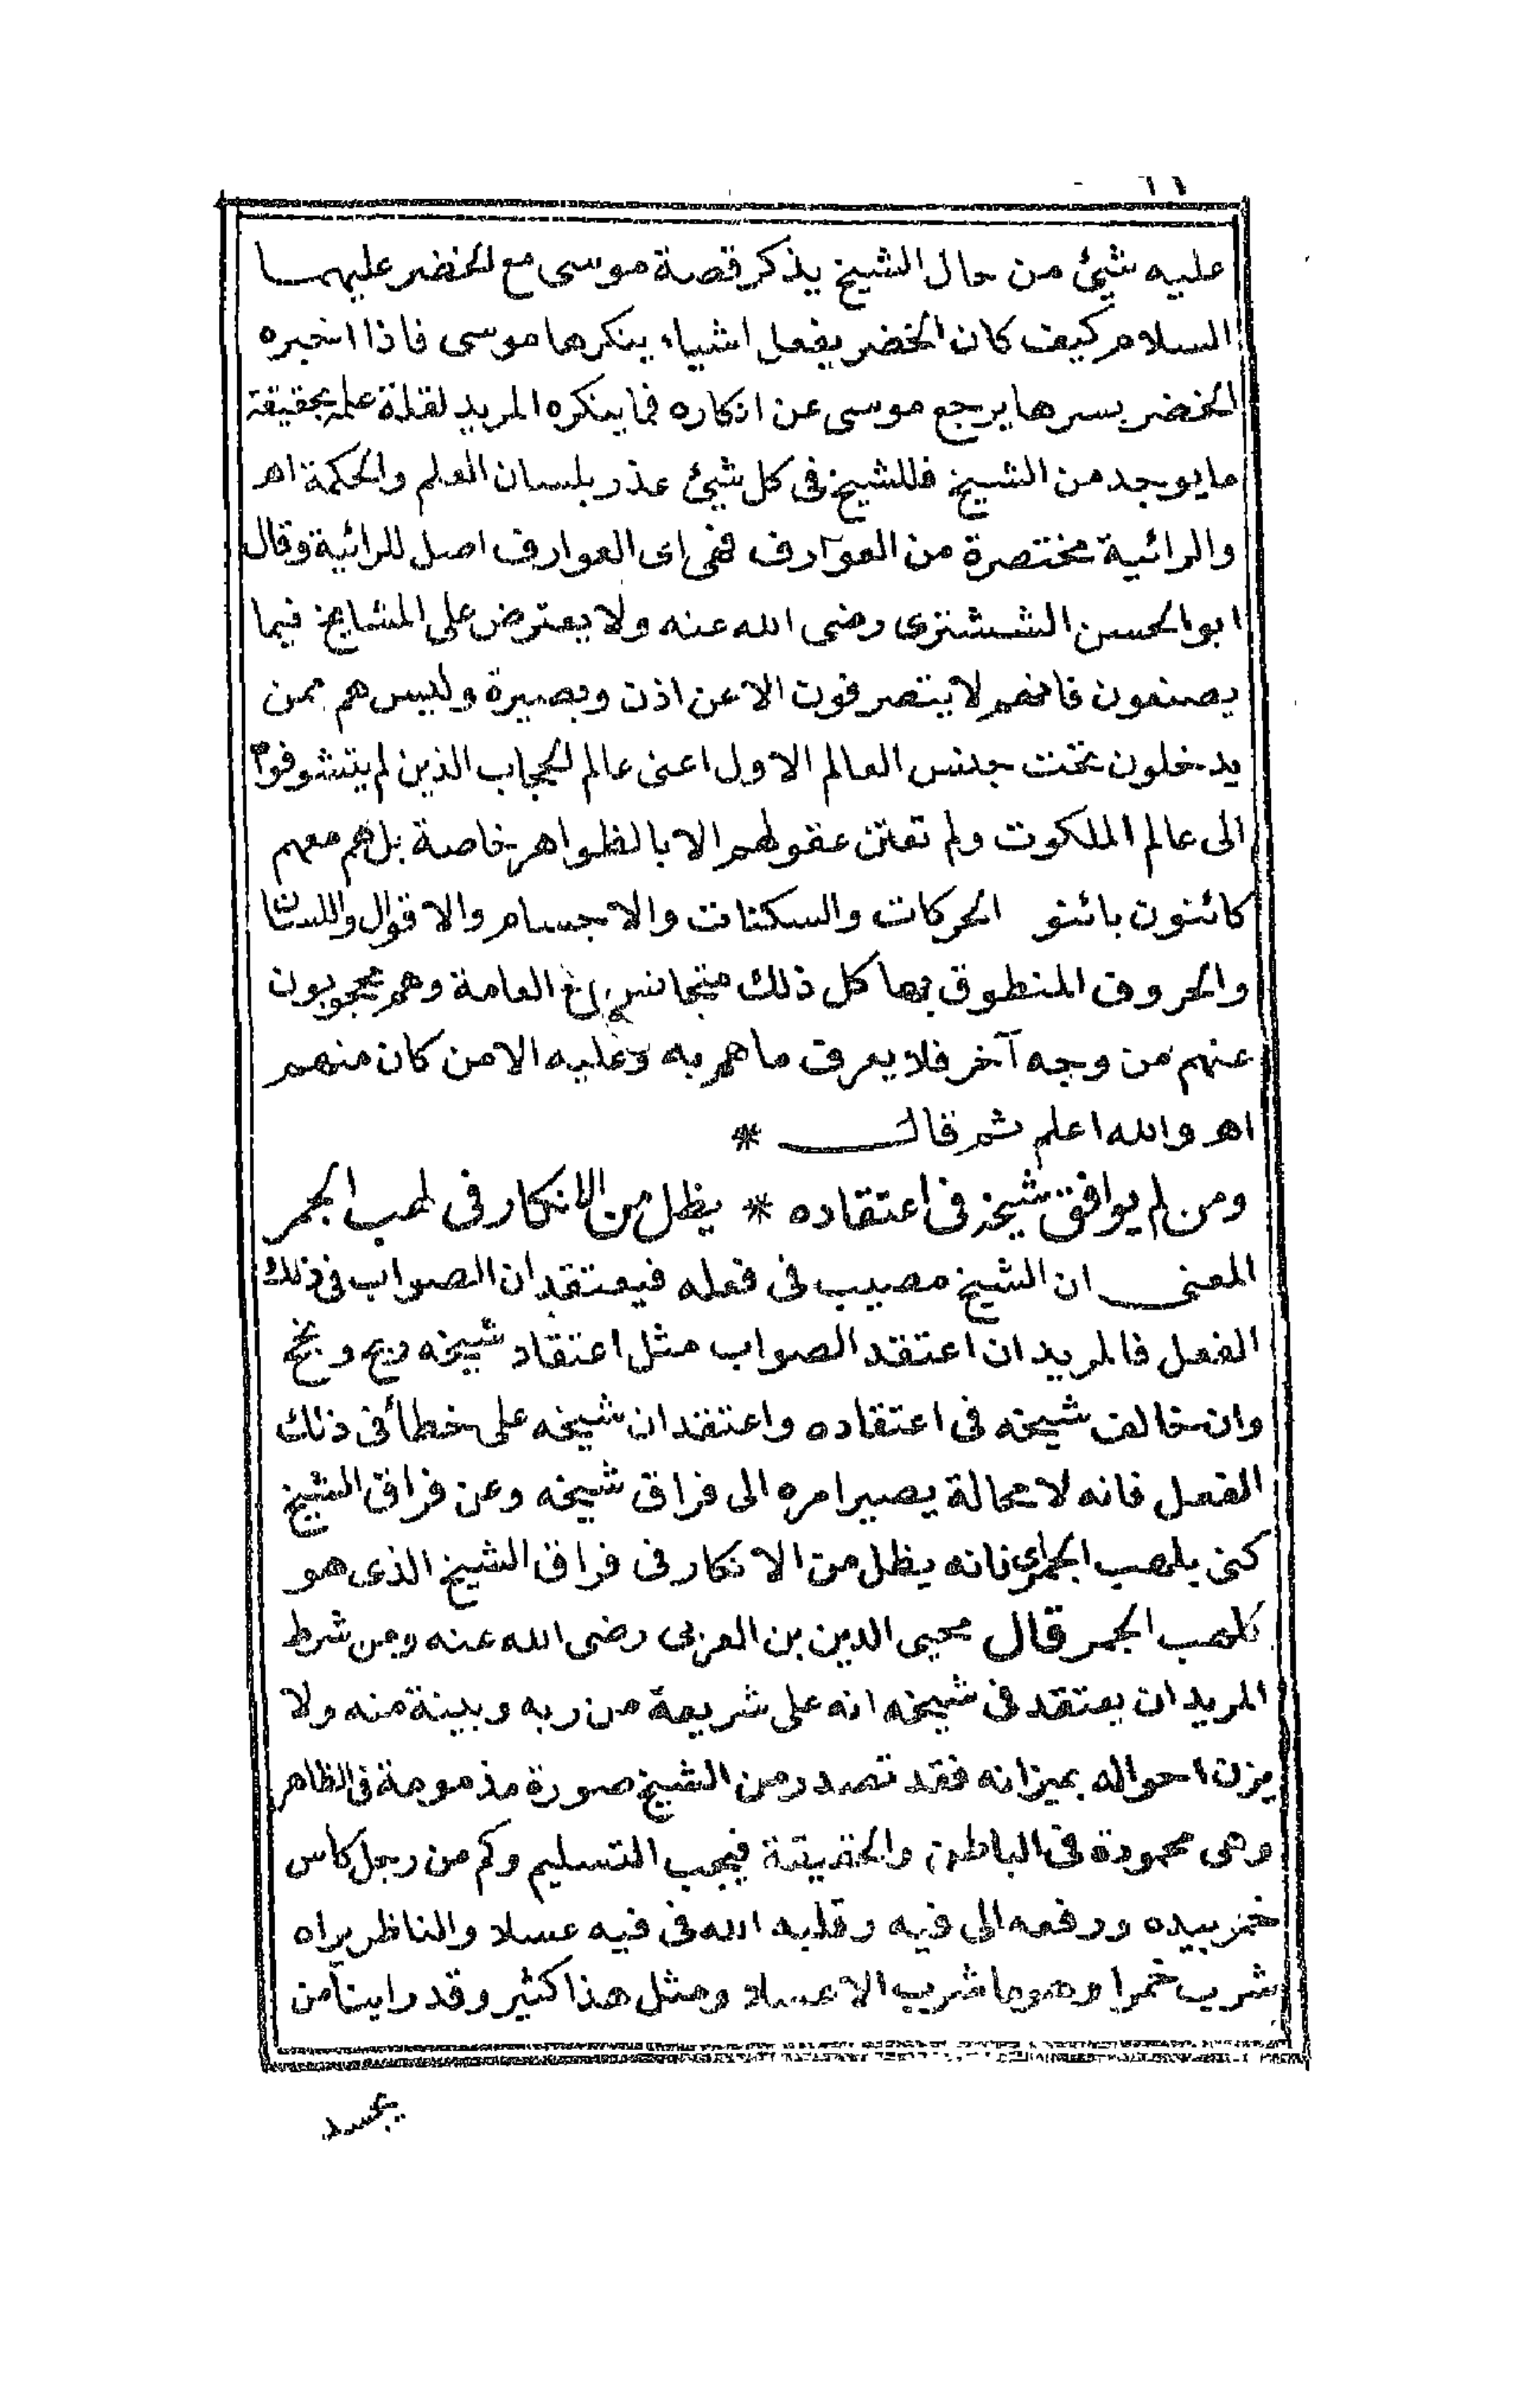 عليه شيئ من حال الشيخ يذكر قصة موسى مع الخضر عليهما
السلام كيف كان الخضر يفعل اشياء ينكرها موسى فاذا اخبره
الخضر بسرها يرجع موسى عن انكاره فما ينكره المريد لقلة علمه بحقيقة
ما يوجد من الشيخ فللشيخ فى كل شيئ عذر بلسان العلم والحكمة اهـ
والرائية مختصرة من العوارف فهى اى العوارف اصل للرائية وقال
ابو الحسن الششترى رضى الله عنه ولا يعترض على المشايخ فيما
يصنعون فانهم لا يتصرفون الا عن اذن وبصيرة وليس هم ممن
يدخلون تحت جنس العالم الاول اعنى عالم الحجاب الذين لم يتشوفوا
الى عالم الملكوت ولم تعتن عقولهم الا بالظواهر خاصة بل هم معهم
كائنون بائنو الحركات والسكنات والاجسام والاقوال واللسان
والحروف المنطوق بها كل ذلك متجانس العامة وهم محجوبون
عنهم من وجه آخر فلا يعرف ما هم به وعليه الا من كان منهم
اهـ والله اعلم ثم قال *
ومن لم يوافق شيخه فى اعتقاده * يظل من الانكار فى لهب الجمر
المعنى ان الشيخ مصيب فى فعله فيعتقد ان الصواب فى ذلك
الفعل فالمريد ان اعتقد الصواب مثل اعتقاد شيخه ربح ونجح
وان خالف شيخه فى اعتقاده واعتقد ان شيخه على خطأ فى ذلك
الفعل فانه لا محالة يصير امره الى فراق شيخه وعن فراق الشيخ
كنى بلهب الجمر اى فانه يظل من الانكار فى فراق الشيخ الذى هو
كلهب الجمر قال محيى الدين بن العربى رضى الله عنه ومن شرط
المريد ان يعتقد فى شيخه انه على شريعة من ربه وبينة منه ولا
يزن احواله بميزانه فقد تصدر من الشيخ صورة مذمومة فى الظاهر
وهى محمودة فى الباطن والحقيقة فيجب التسليم وكم من رجل كاس
خمر بيده ورفعه الى فيه وقلبه الله فى فيه عسلا والناظر يراه
شرب خمرا وهو ما شرب الا عسلا ومثل هذا كثير وقد راينا من
يجسد